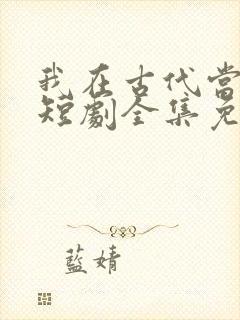 我在古代當
短劇全集免
藍婧